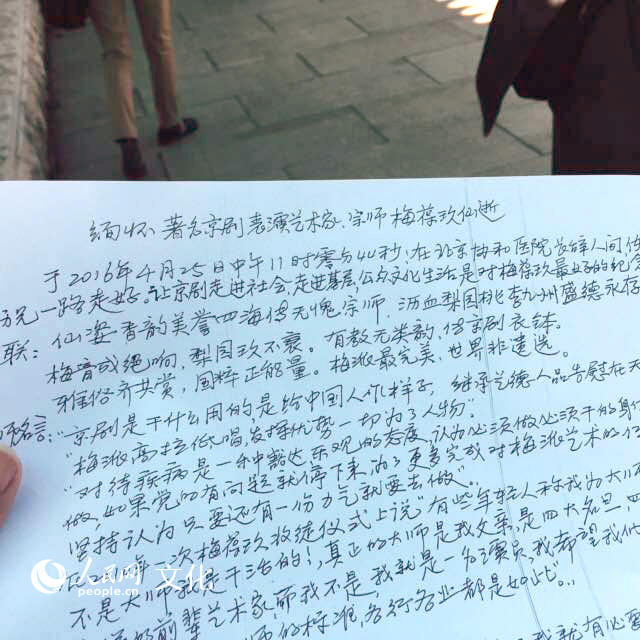 缅怀、著名京剧表演艺术家、宗师梅葆玖仙逝
于2016年4月25日中午11时零分44秒,在北京协和医院与世辞人间
一路走好。让京剧走进社会,走进基层,公众文化生活是对梅葆玖最好的纪念
联:仙姿香韵美誉四海传无愧宗师,沥血梨园桃李九州盛德永存
梅音成绝响,梨园玖不衰。有教无类韵,传京剧衣钵。
雅俗齐共赏,国粹正能量。梅派最完美,世界非遗选。
名言:"京剧是干什么用的是给中国人作样子,继承艺德人品告慰在天
"梅派高拉低唱,发挥优势一切为了人物"。
"对待疾病是一种豁达乐观的态度,认为必须做必须干的事
做,如果觉的有问题就停下来,为了更多完成对梅派艺术的
坚持认为只要还有一份力气就要去做"。
年一次梅葆玖收徒仪式上说"有些年轻人称我为大师
不是大师我是干活的!,真正的大师是我父亲,是四大名旦,四
前辈艺术家,而我不是,我就是一名演员,我希望我们
师的标准,各行各业都是如此"...
我有必要
人民网 文化
people.cn